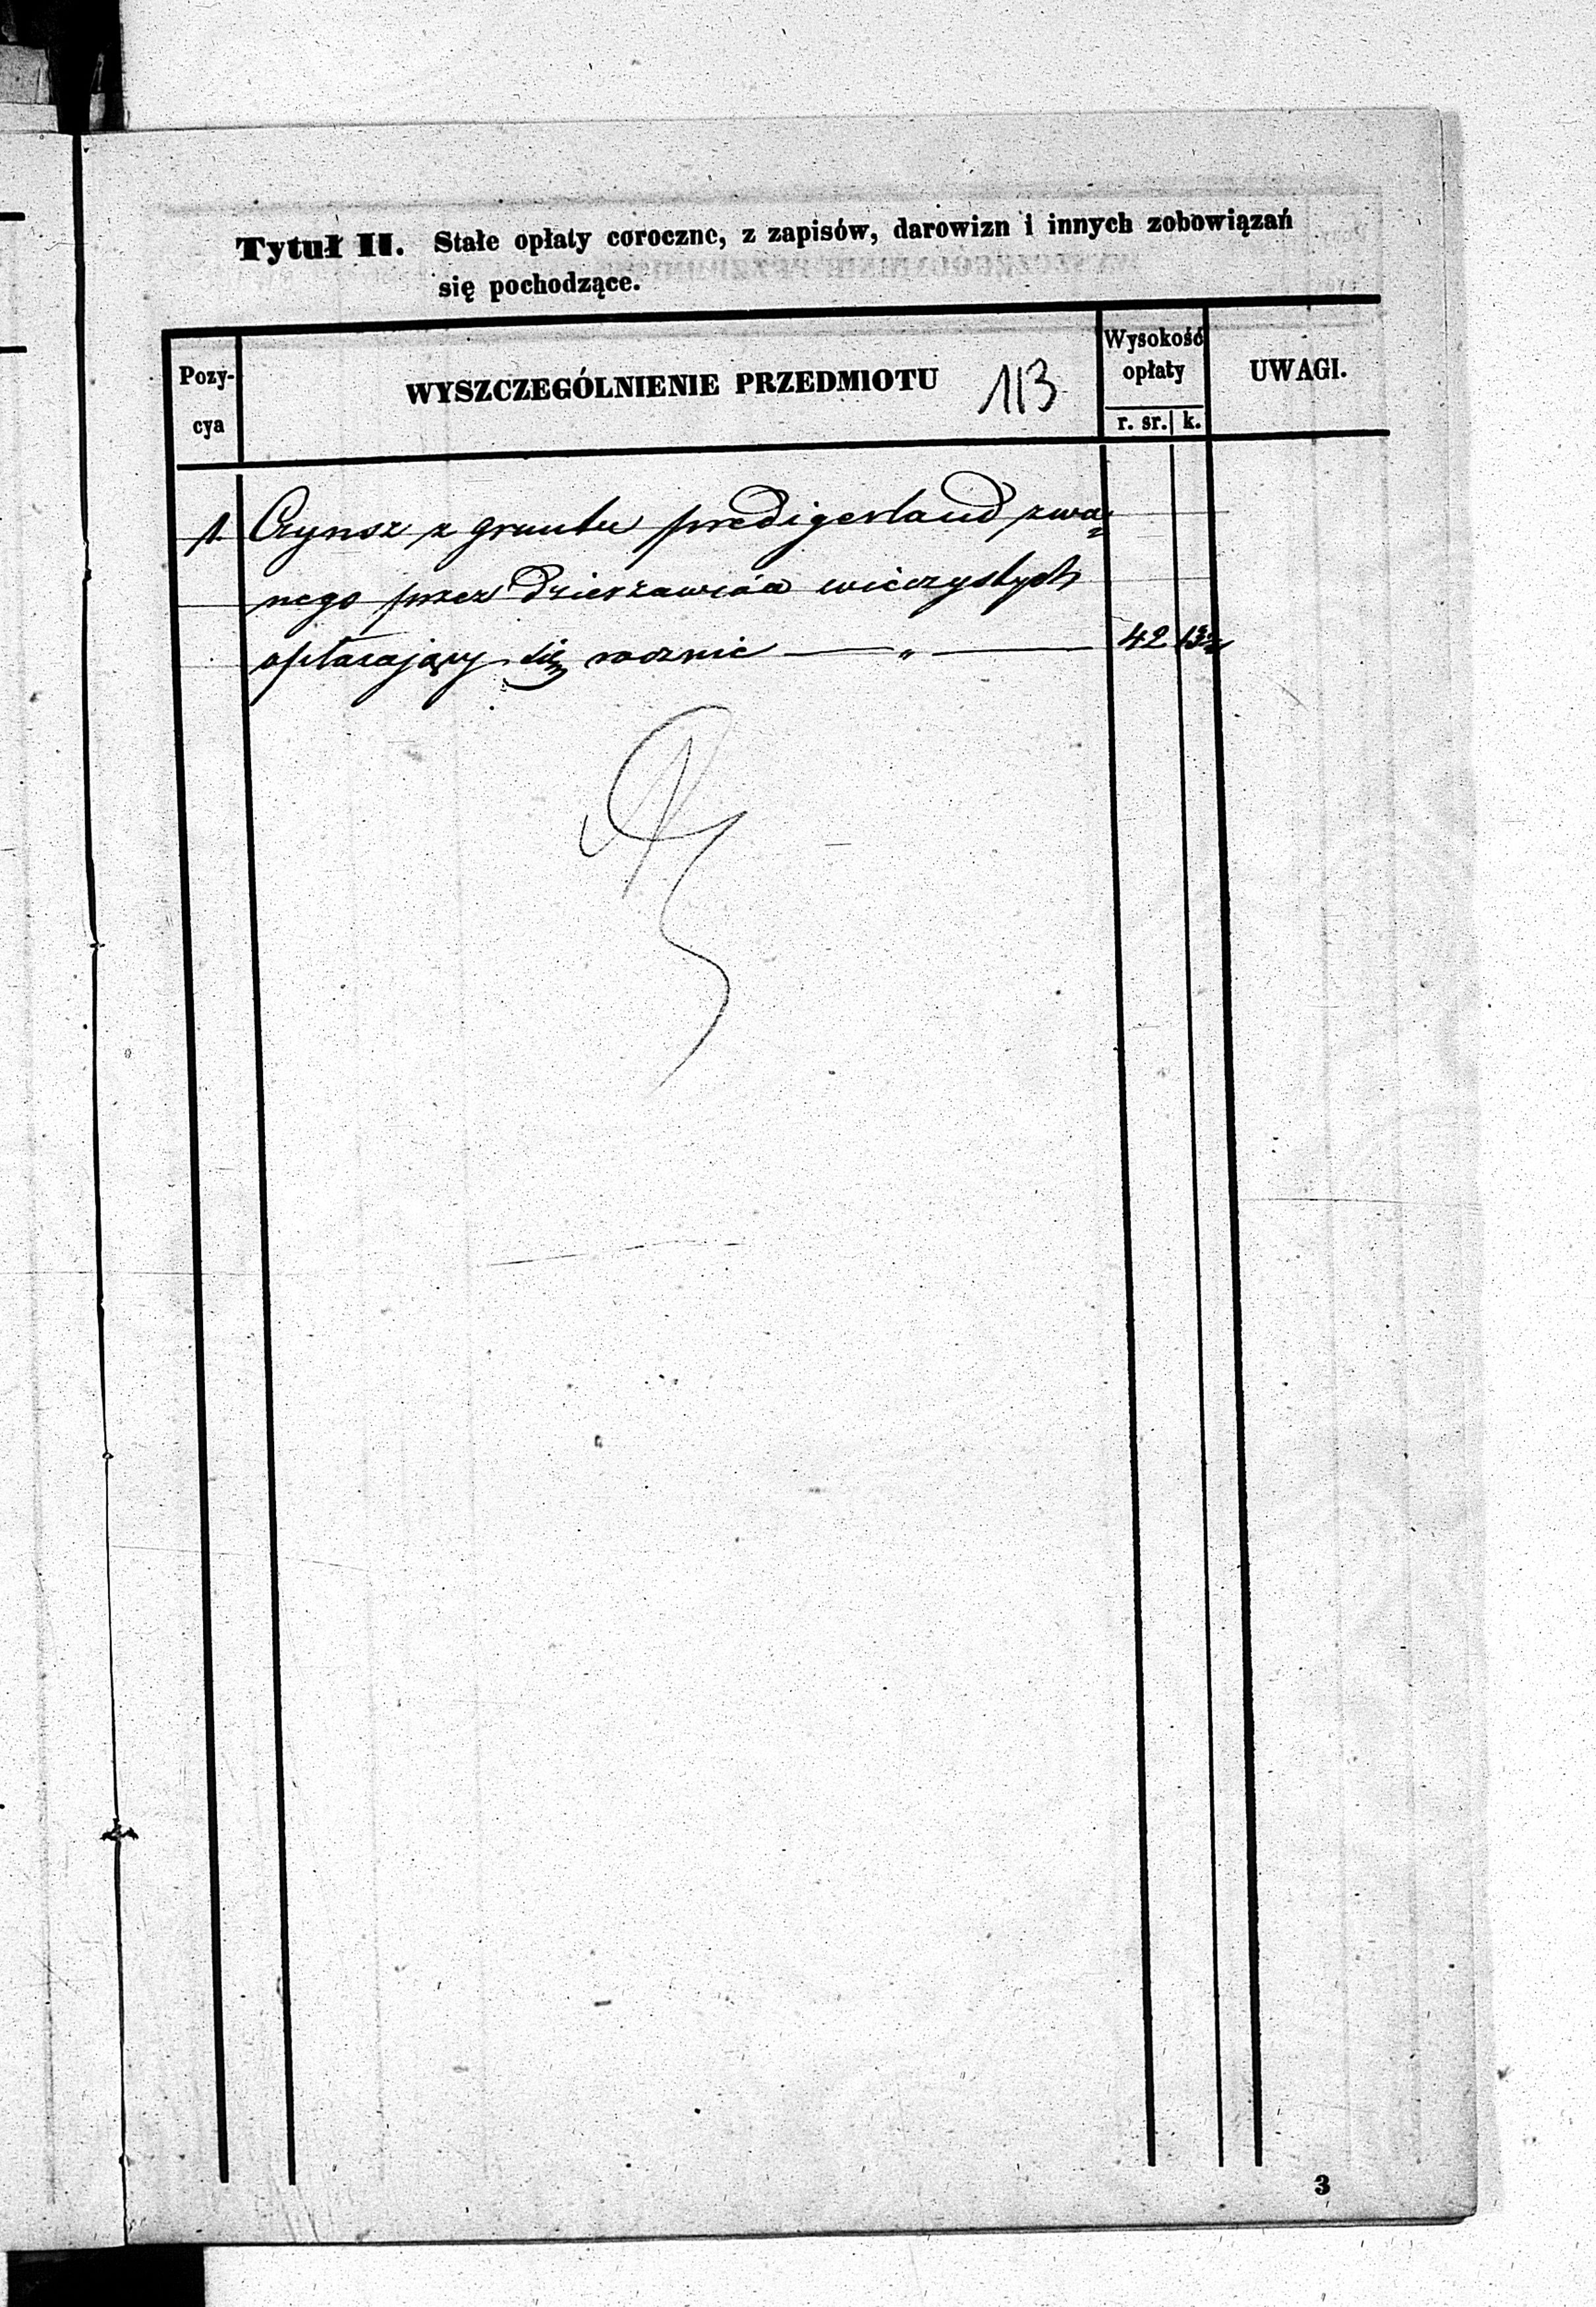 Tytuł II. Stałe opłaty coroczne, z zapisów, darowizn i innych zobowiązań
się pochodzące.
Pozy-
cya
WYSZCZEGÓLNIENIE PRZEDMIOTU
113
Wysokość
opłaty
r. sr. k.
UWAGI.
1. Czynsz z gruntu predigerland zwa=
nego przez dzierżawców wieczystych
opłacający się rocznie — „ — 42 13½
3